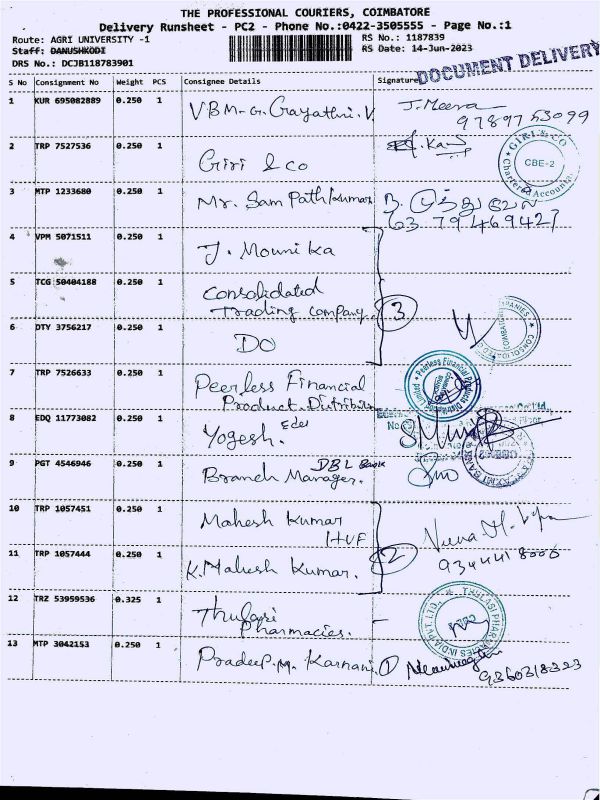 THE PROFESSIONAL COURIERS, COIMBATORE
Delivery Runsheet - PC2 - Phone No.:0422-3505555 - Page No.:1
Route: AGRI UNIVERSITY -1 RS No.: 1187839
Staff: DANUSHKODI RS Date: 14-Jun-2023
DRS No.: DCJB118783901
DOCUMENT DELIVERY
S No Consignment No Weight PCS Consignee Details Signature
1 KUR 695082889 0.250 1 VBM-G. Gayathri.V J. Meera
9789753099
2 TRP 7527536 0.250 1 Giri & co
GIRI & CO
Chartered Accounta
CBE-2
3 MTP 1233680 0.250 1 Mr. Sam Path kumar
63 79 469427
4 VPM 5071511 0.250 1 J. Mounika
5 TCG 50404188 0.250 1 Consolidated
Trading company. 3
6 DTY 3756217 0.250 1 DO
7 TRP 7526633 0.250 1 Peerless Financial
Product Distribu
Peerless Financial Products Distribution Limited
8 EDQ 11773082 0.250 1 Yogesh.
9 PGT 4546946 0.250 1 Branch Manager. DBL Bank
10 TRP 1057451 0.250 1 Mahesh kumar
HUF
11 TRP 1057444 0.250 1 K. Mahesh Kumar. 2
9344418000
12 TRZ 53959536 0.325 1 Thulasi
Pharmacies.
THULASI PHARMACIES INDIA PVT. LTD.,
13 MTP 3042153 0.250 1 Pradeep.M. Karnani. 1
9360318323